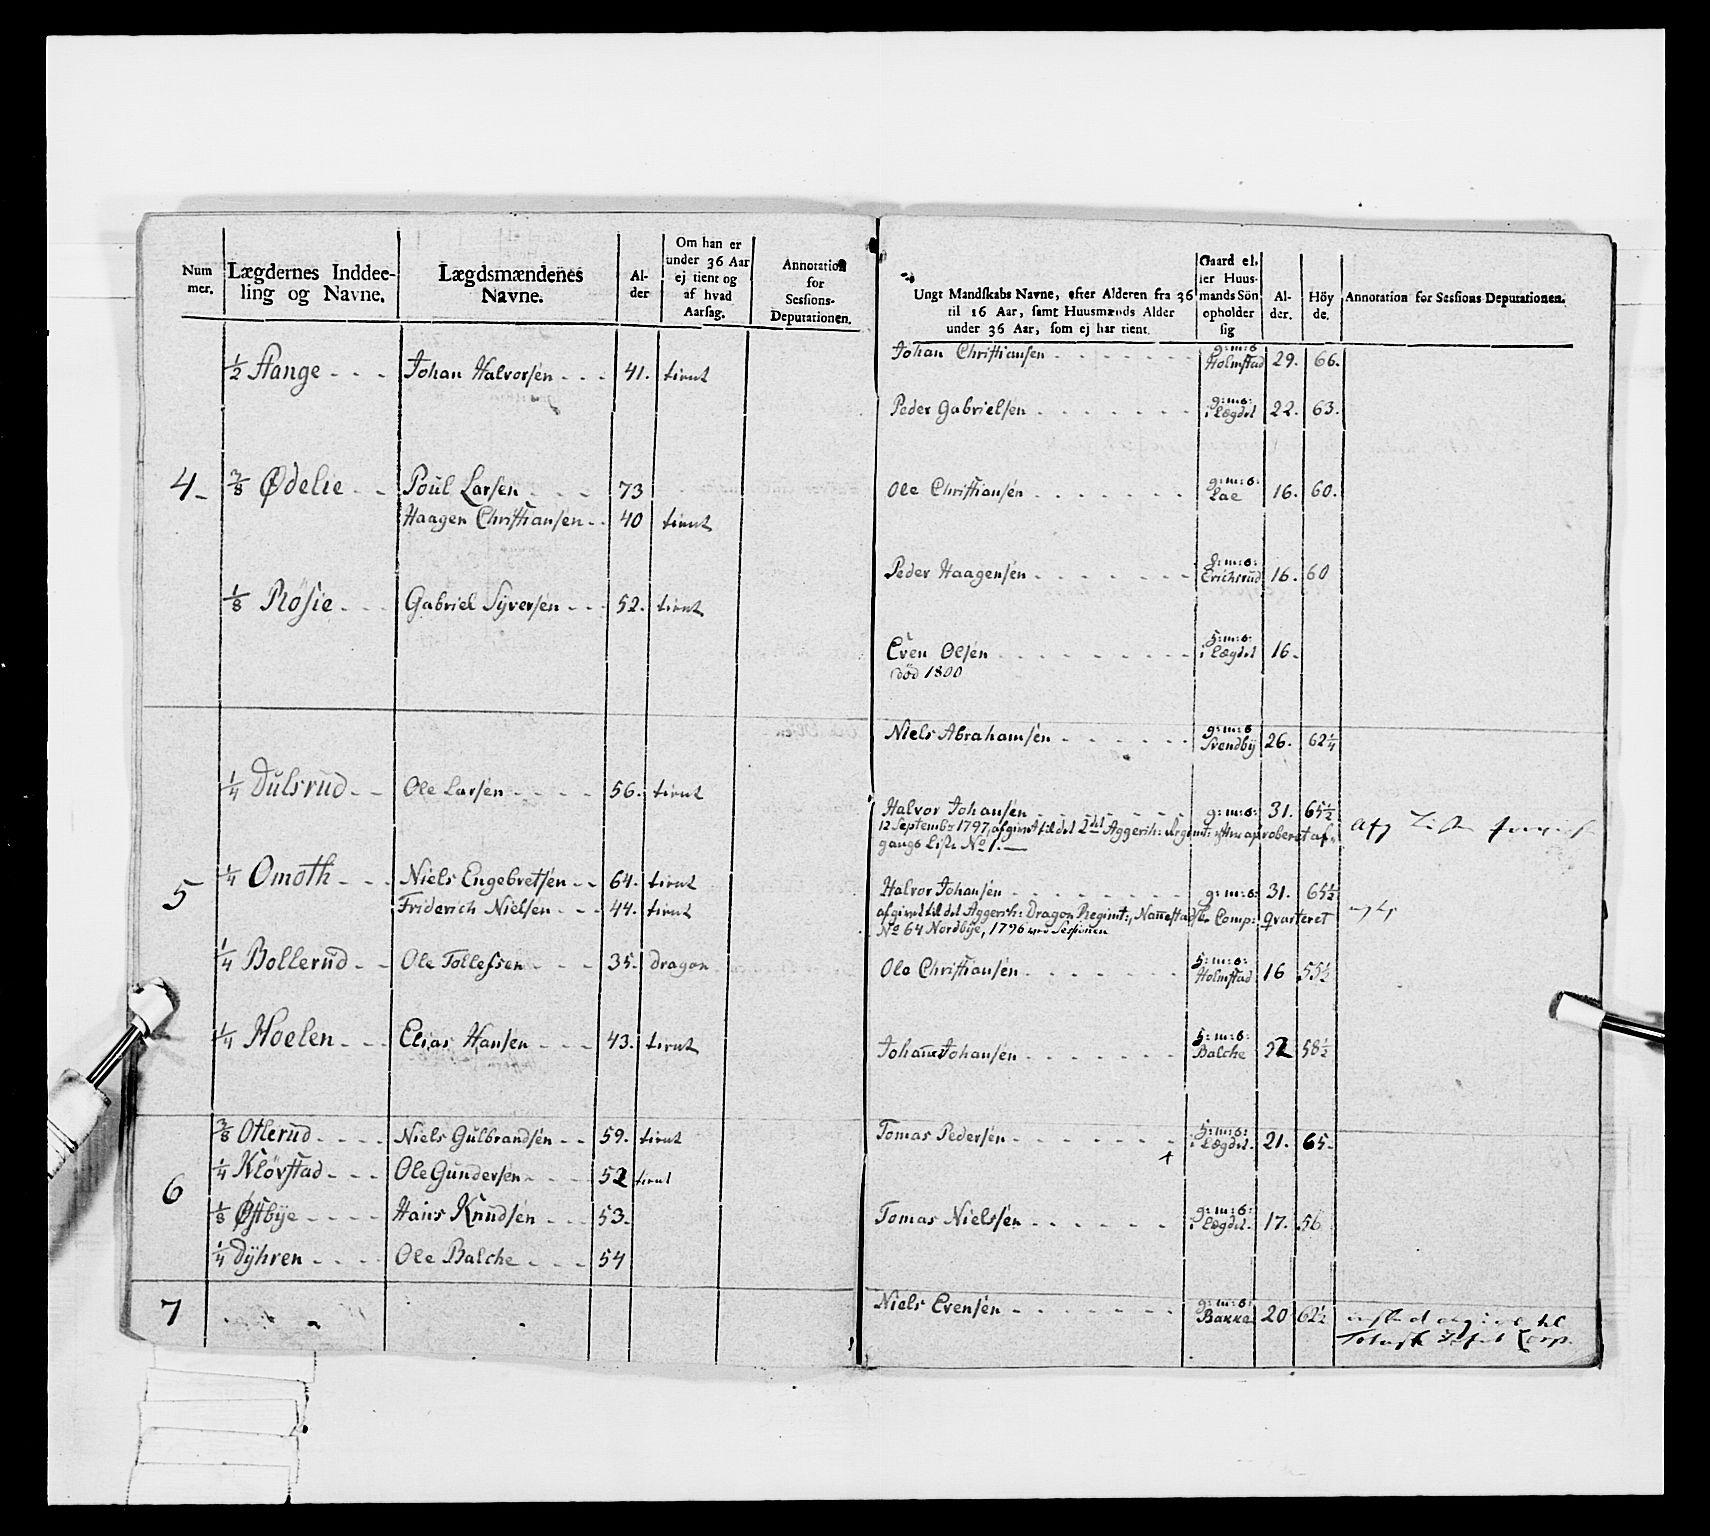 Num
mer.
Lægdernes Inddee-
ling og Navne.
Lægdsmændenes
Navne.
Al-
der
Om han er
under 36 Aar
ej tient og
af hvad
Aarsag.
Annotation
for
Sessions-
Deputationen.
½ Stange - - - Johan Halvorsen - - - 41. tient
4 - ⅜ Ødelie - - Poul Larsen - - - 73
Haagen Christiansen - - 40 tient
⅛ Rösie - - - Gabriel Syversen - - - 52. tient
¼ Dulsrud - - Ole Larsen - - - - 56. tient
5 ¼ Omoth - - - Niels Engebretsen - - 64. tient
Friderich Nielsen - - - 44. tient
¼ Bollerud - - Ole Tollefsen - - - 35. Dragon
¼ Hoelen - - - Elias Hansen - - - 43. tient
⅜ Otlerud - - - - Niels Gulbrandsen - - 59. tient
¼ Klövstad - - - Ole Gundersen - - - - 52 tient
6
⅛ Østbye - - - - Hans Knudsen - - - 53.
¼ Dyhren - - - - Ole Balche - - - 54
7
Ungt Mandskabs Navne, efter Alderen fra 36
til 16 Aar, samt Huusmænds Alder
under 36 Aar, som ej har tient.
Gaard el-
ler Huus-
mands Sön
opholder
sig
Al-
der.
Höy
de.
Annotation for Sessions Deputationen.
Johan Christiansen - - - - - - - g: m: s: Holmstad 29. 66.
Peder Gabrielsen - - - - - - - g: m: s: i Lægdet 22. 63.
Ole Christiansen - - - - - - - g: m: s: Lae 16. 60.
Peder Haagensen - - - - - - - g: m: s: Erichsrud 16. 60
Even Olsen - - - - - - - - - h: m: s: i Lægdet 16.
död 1800
Niels Abrahamsen - - - - - - g: m: s Svendby 26. 62¼
Halvor Johansen - - - - - - - g: m: s: 31. 65½
12 Septemb: 1797, afgivet til det 2det Aggersh: Regimt: efter aproberet af-
gangs Liste No 1.
Halvor Johansen - - - - - - - g: m: s: 31. 65½
afgivet til det Aggersh: Dragon Regimt:, Nannestadske Comp: Qvarteret
No 64 Nordbye, 1796 ved Sessionen
Ole Christiansen - - - - - - - h: m: s: Holmstad 16 55½
Johannes Johansen - - - - - - - h: m: s: Balche 22 58½
Tomas Pedersen - - - - - - - h: m: s: i Lægdet. 21. 65.
Tomas Nielssen - - - - - - - g: m: s: i Lægdet. 17. 56
Niels Evensen - - - - - - - g: m: s: Bakke 20 62½